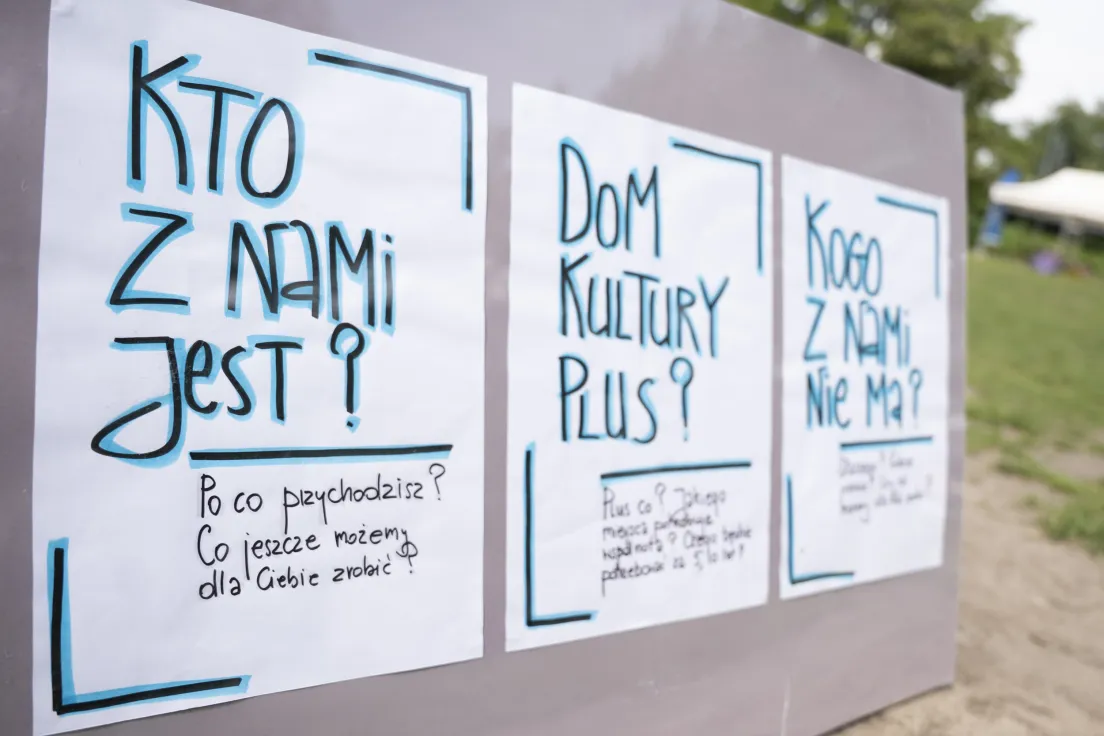 KTO
Z NAMI
JEST?
Po co przychodzisz?
Co jeszcze możemy
dla Ciebie zrobić?
DOM
KULTURY
PLUS?
Plus co? Jakiego
miejsca potrzebuje
wspólnota? Czego będzie
potrzebować za 5, 10 lat?
KOGO
Z NAMI
NIE MA?
Dlaczego?